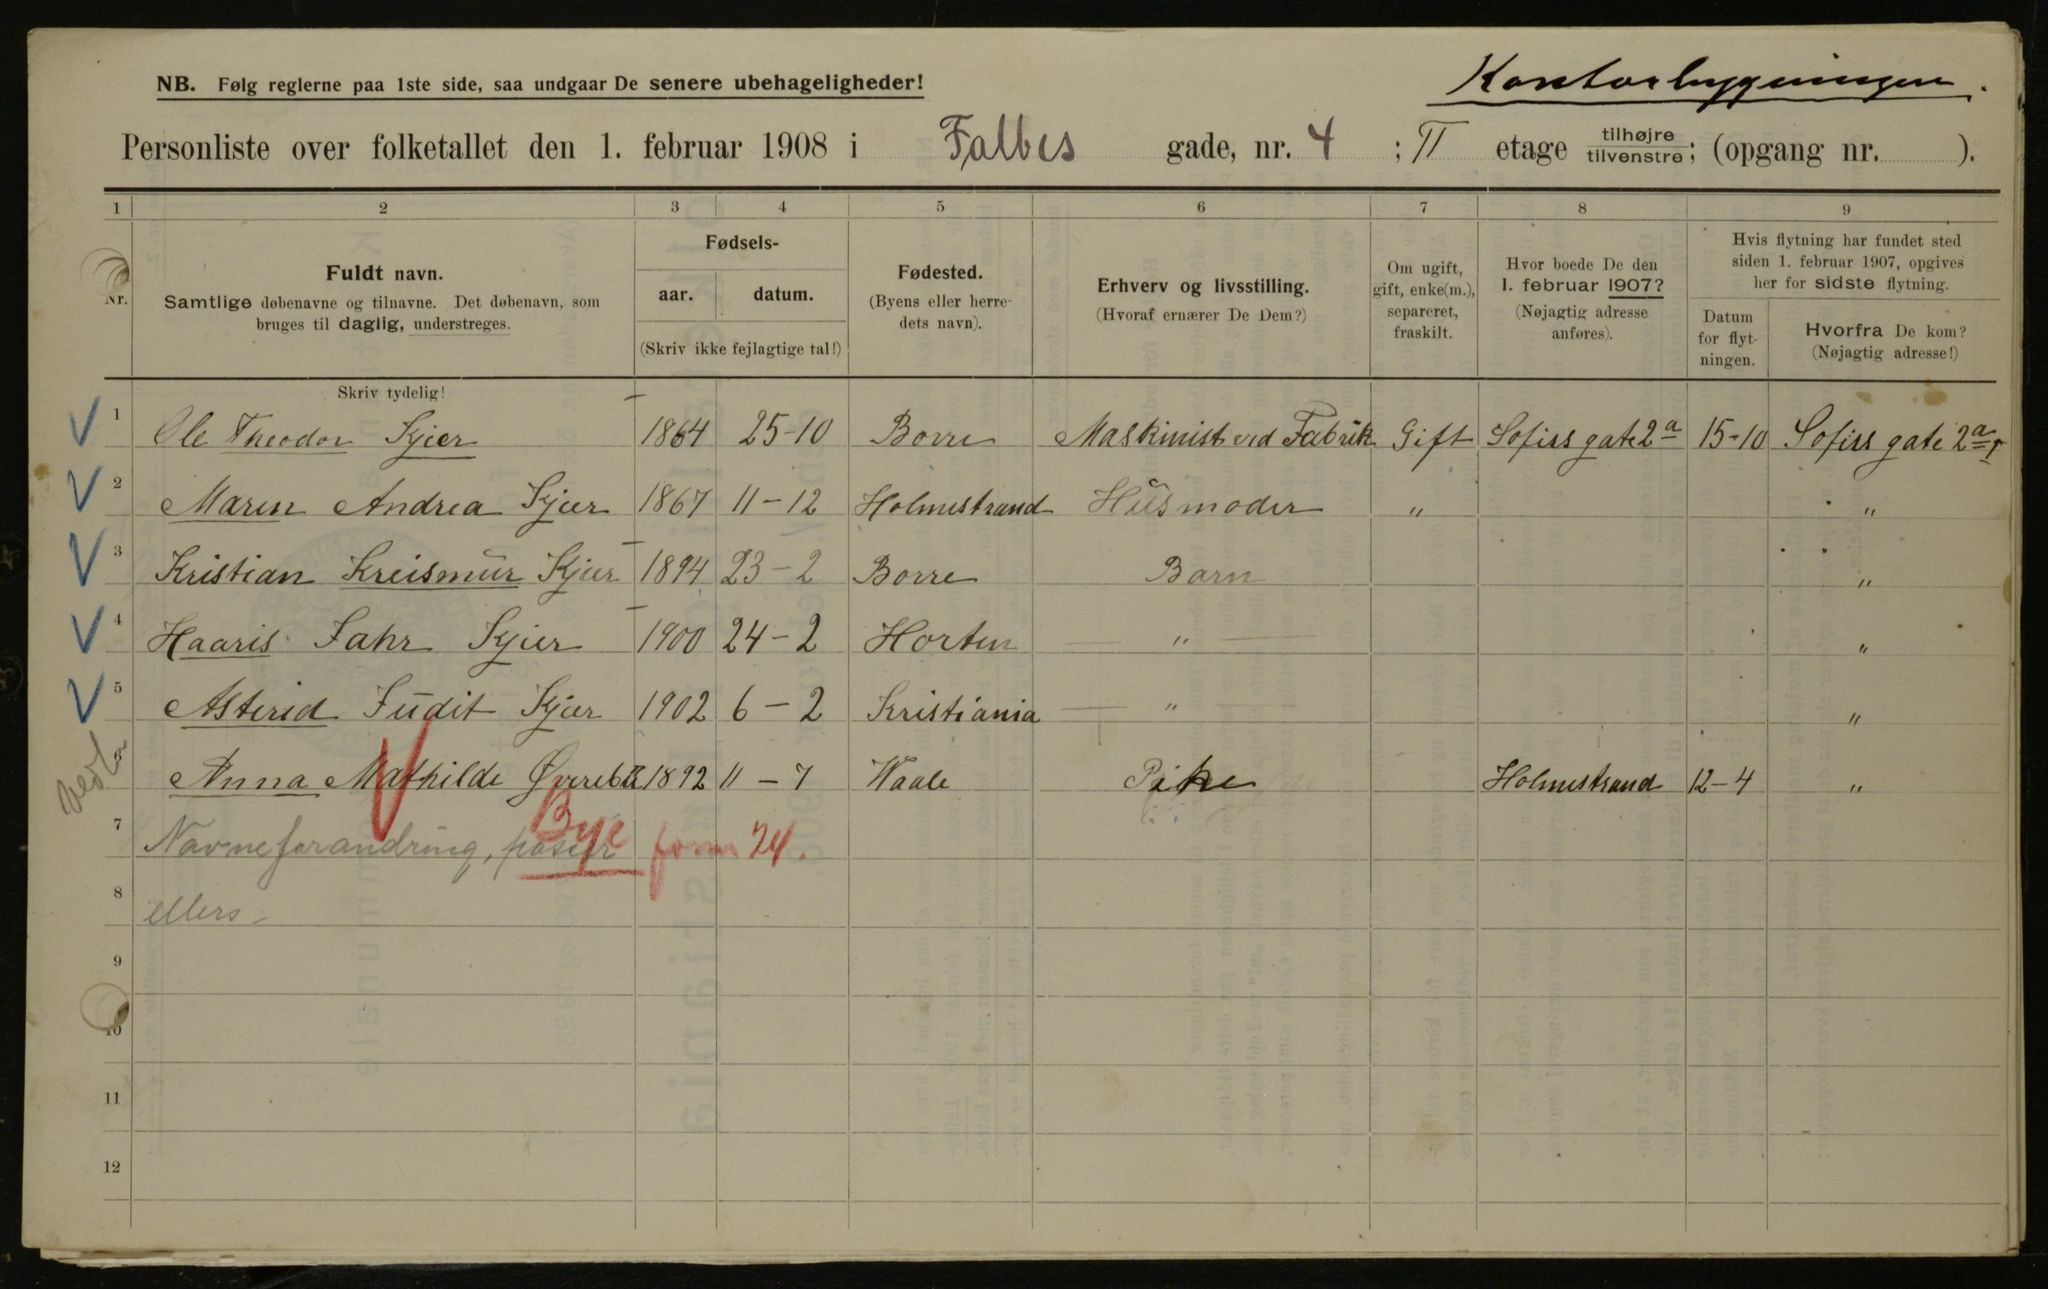 Kontorbygningen.
NB. Følg reglerne paa 1ste side, saa undgaar De senere ubehageligheder!
Personliste over folketallet den 1. februar 1908 i Falbes gade, nr. 4 ; II etage tilhøjre tilvenstre; (opgang nr. ).
1 2 3 4 5 6 7 8 9
Nr.
Fuldt navn.
Samtlige døbenavne og tilnavne. Det døbenavn, som
bruges til daglig, understreges.
Fødsels-
aar. datum.
(Skriv ikke fejlagtige tal!)
Fødested.
(Byens eller herre-
dets navn).
Erhverv og livsstilling.
(Hvoraf ernærer De Dem?)
Om ugift,
gift, enke(m.),
separeret,
fraskilt.
Hvor boede De den
1. februar 1907?
(Nøjagtig adresse
anføres).
Hvis flytning har fundet sted
siden 1. februar 1907, opgives
her for sidste flytning.
Datum
for flyt-
ningen.
Hvorfra De kom?
(Nøjagtig adresse!)
Skriv tydelig!
1 Ole Theodor Kjier 1864 25-10 Borre Maskinist ved Fabrik Gift Sofies gate 2a 15-10 Sofies gate 2a
2 Maren Andrea Kjier 1867 11-12 Holmestrand Husmoder " "
3 Kristian Kreismur Kjier 1894 23-2 Borre Barn "
4 Haaris Jahr Kjier 1900 24-2 Horten " "
5 Asterid Judit Kjier 1902 6-2 Kristiania " "
6 Anna Mathilde 1892 11-7 Vaale Pike Holmestrand 12-4 "
7 Navneforandring, passer Bye form 24.
8 ellers
9
10
11
12